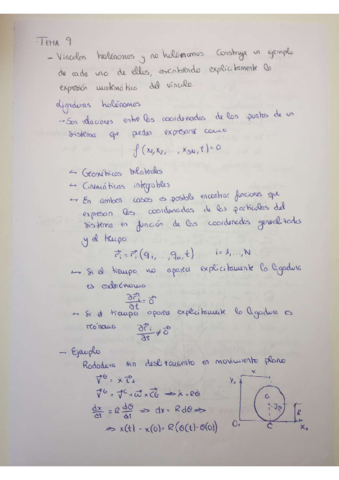 TEMA 9
- Vínculos holónomos y no holónomos. Construya un ejemplo
de cada uno de ellos, mostrando explícitamente la
expresión matemática del vínculo
Ligaduras holónomas
→ Son relaciones entre las coordenadas de los puntos de un
sistema que puedes expresarse como
f(x₁,x₂, ..., x₃ₙ,t)=0
→ Geométricas bilaterales
→ Cinemáticas integrables
→ En ambos casos es posible encontrar funciones que
expresan las coordenadas de las partículas del
sistema en función de las coordenadas generalizadas
y el tiempo
r⃗ᵢ = r⃗ᵢ(q₁, ..., qₙ, t) i=1,...,N
→ Si el tiempo no aparece explícitamente la ligadura
es esclerónoma
∂r⃗ᵢ/∂t = 0⃗
→ Si el tiempo aparece explícitamente la ligadura es
reónoma ∂r⃗ᵢ/∂t ≠ 0⃗
- Ejemplo
Rodadura sin deslizamiento en movimiento plano
dx/dt = R dθ/dt ⇒ dx = R dθ ⇒
⇒ x(t) - x(0) = R(θ(t) - θ(0))